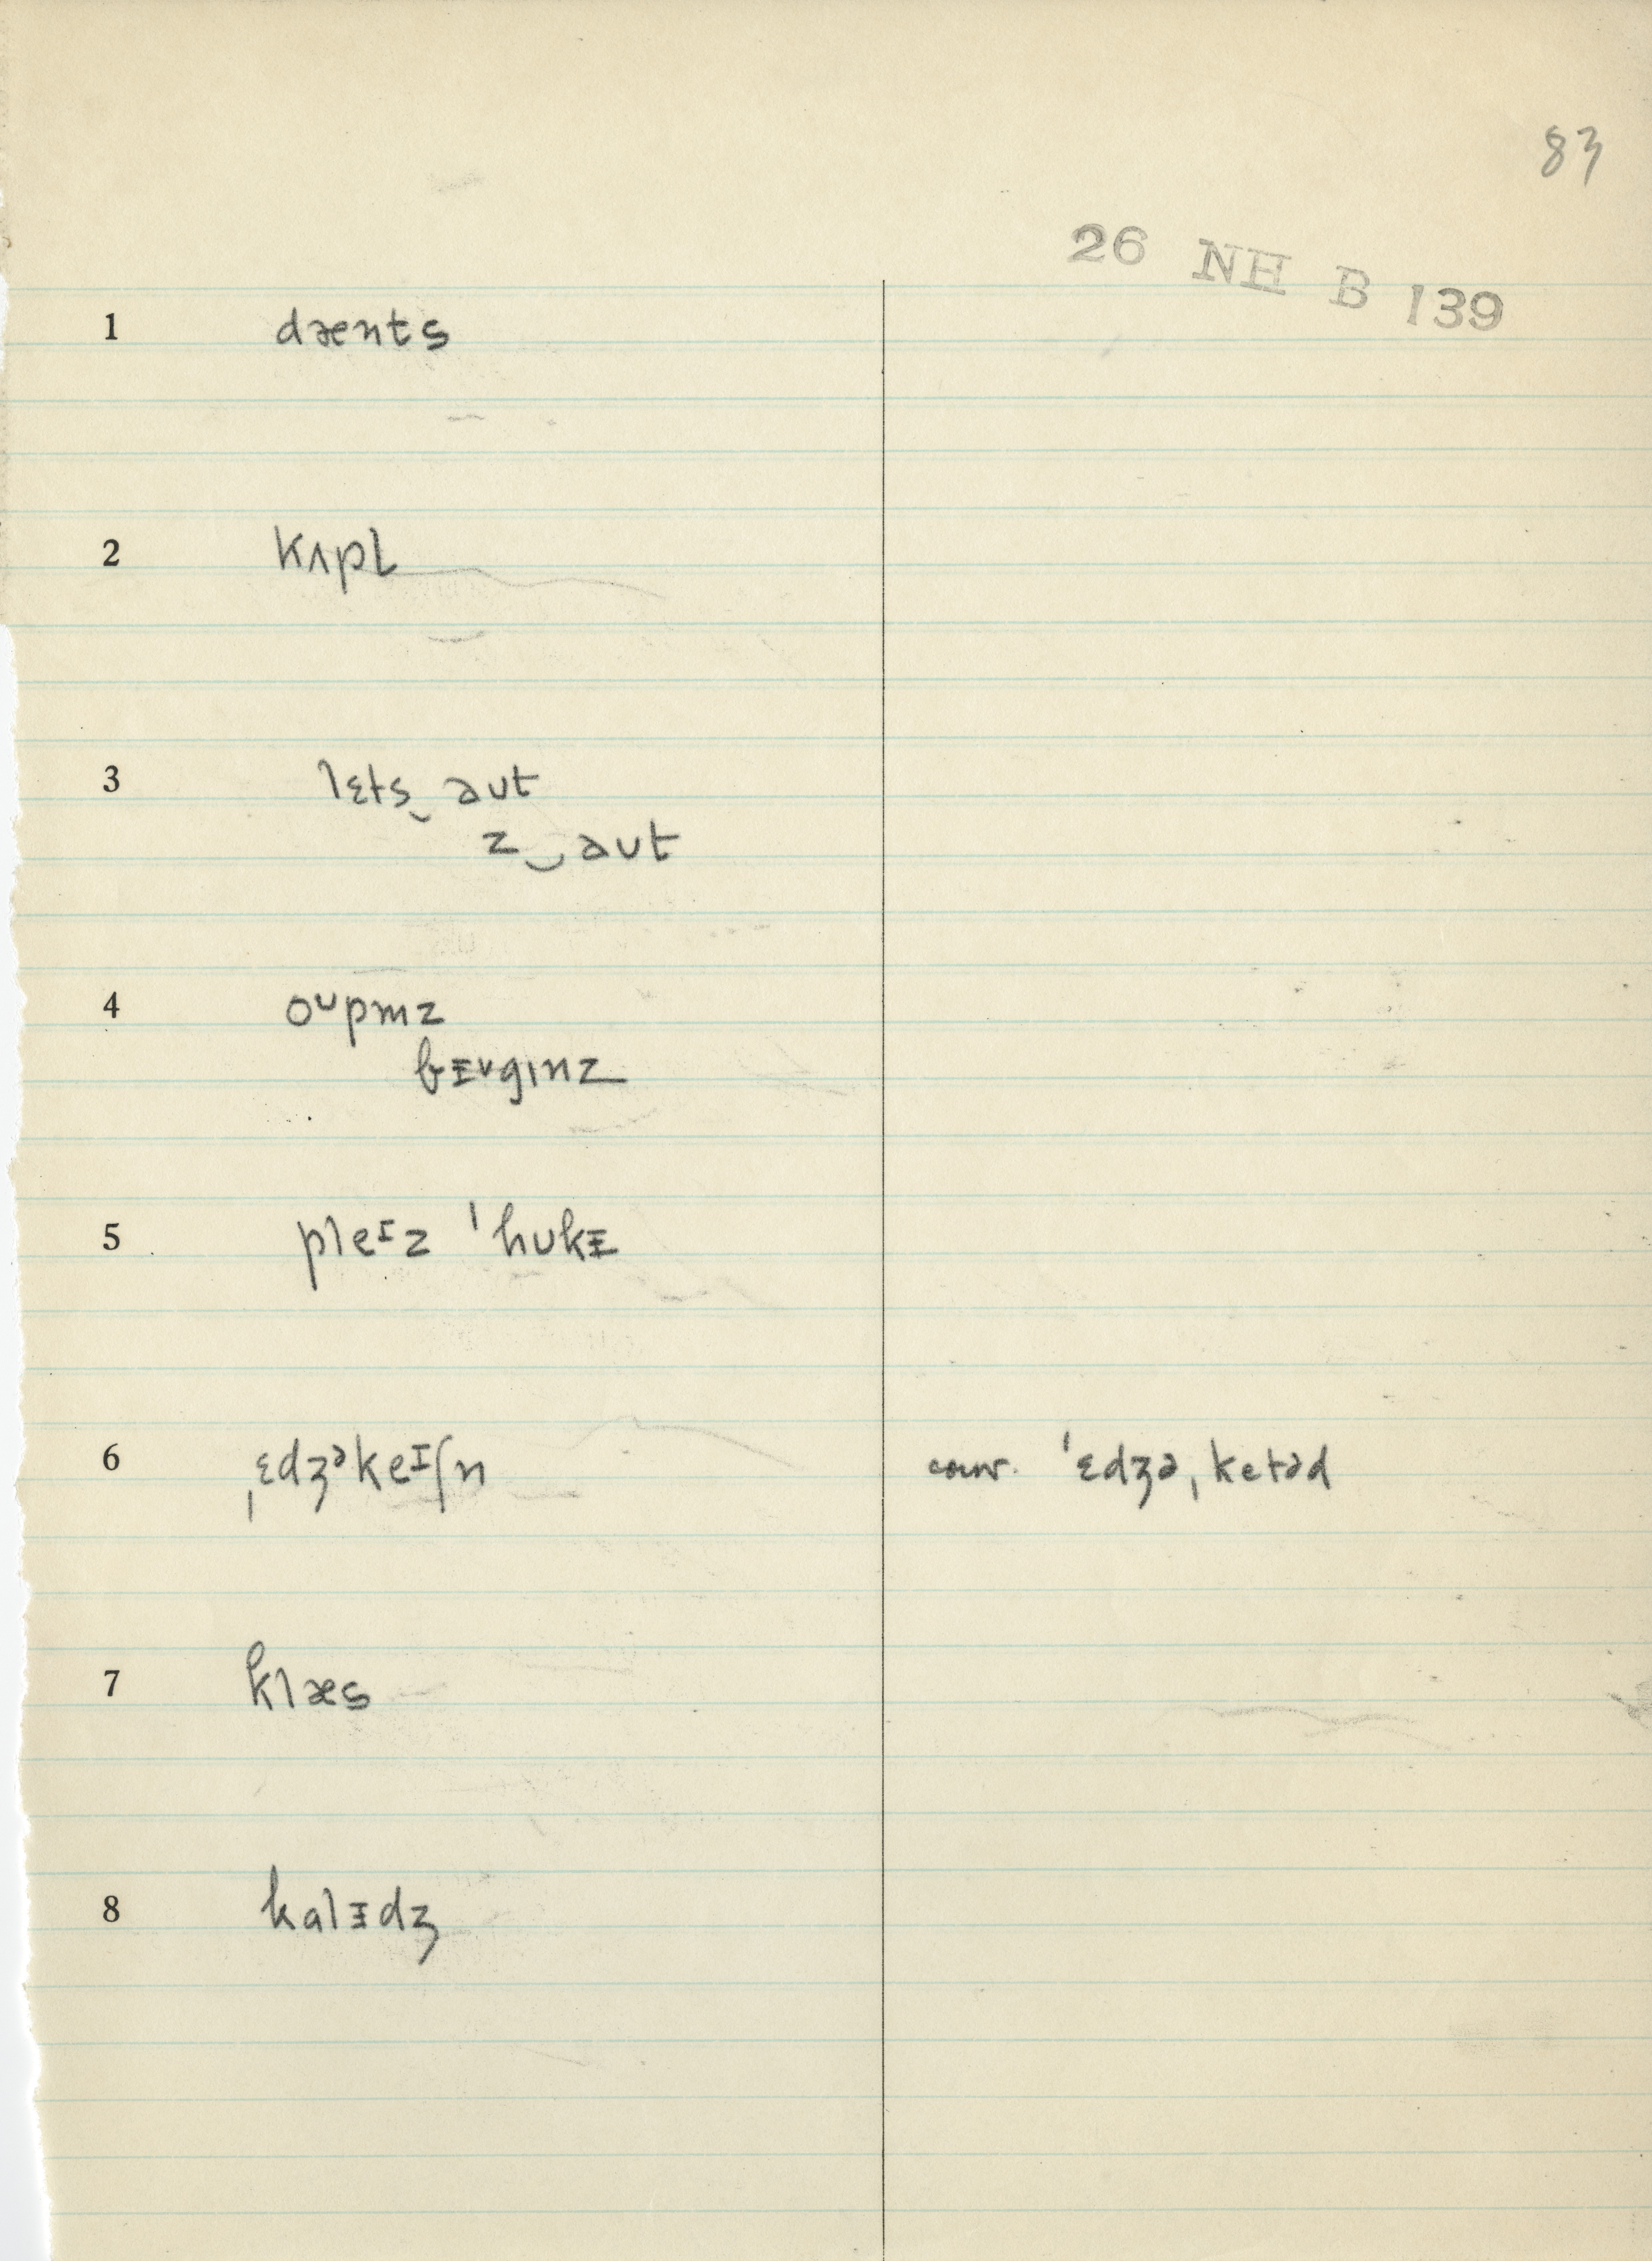 83
26 NH B 139
1 dænts
2 kʌpl̩
3 lɛts‿ aʊt
z‿aʊt
4 oᶷpmz
bɪᵛgɪnz
5 pleᶦz ˈhʊkɪ
6 ˌɛdʒᵊkeᶦʃn conv. ˈɛdʒəˌketəd
7 klæs
8 kalɪdʒ